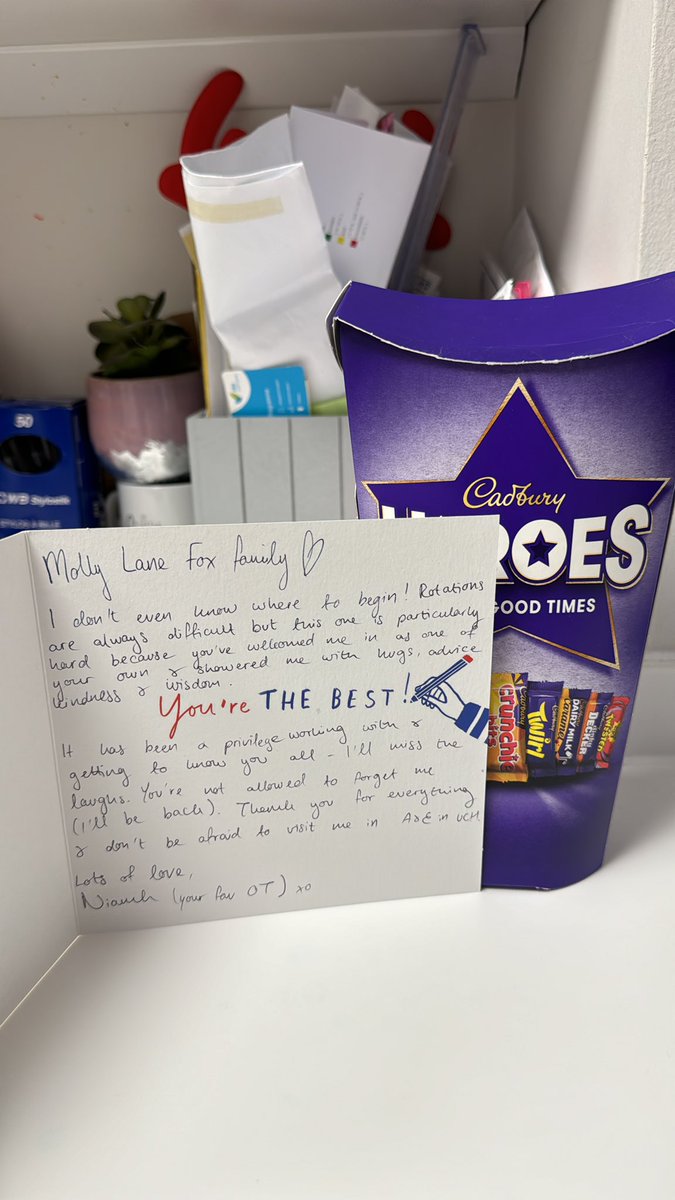 50
CWB Stylsette
Cadbury
HEROES
GOOD TIMES
Crunchie
bits
Twirl
DAIRY MILK
DECKER
Molly Lane Fox family
I don't even know where to begin! Rotations
are always difficult but this one is particularly
hard because you've welcomed me in as one of
your own & showered me with hugs, advice
kindness & wisdom.
You're THE BEST!
It has been a privilege working with &
getting to know you all. I'll miss the
laughs. You're not allowed to forget me
(I'll be back). Thank you for everything
& don't be afraid to visit me in A&E in UCH
Lots of love,
Niamh (your fav OT) xo